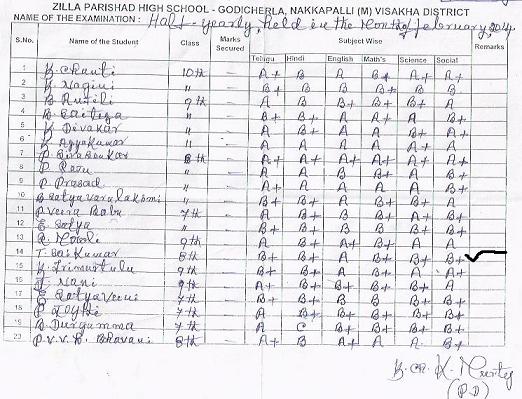 ZILLA PARISHAD HIGH SCHOOL - GODICHERLA, NAKKAPALLI (M) VISAKHA DISTRICT
NAME OF THE EXAMINATION : Half-yearly, held in the Month of february, 2014
S.No. Name of the Student Class Marks Secured Subject Wise Remarks
Telugu Hindi English Math's Science Social
1 K. Chanti 10th — A+ B A B+ A+ A+
2 K. Nagini " — B+ B B B+ B B
3 9th — A B B+ B+ A
4 " — B+ B+ A A+ A B+
5 K. Divakar " — A B+ A A A B+
6 K. Ayyakumar " — A A A A A+ A
7 8th — A+ A+ A+ A+ A+ A+
8 P. Raju " — A B+ B+ A A B+
9 P. Prasad " — A+ A A A A B+
10 B. Satyavaralakshmi " — B+ B+ A B B+ A
11 P. Veera Babu 7th — A B+ B B+ A+ B+
12 E. Satya " — B+ B+ B B B+ B+
13 R. Mouli 9th — A B A+ B+ A A
14 T. Sai Kumar 8th — B+ B+ B B+ B+ B+
15 K. Trimurtulu 9th — B+ B+ A B+ A A+
16 J. Nani 9th — A+ B+ B B+ B+ A
17 E. Satyaveni 7th — B+ B+ B B B+ B+
18 P. Jyothi 7th — A B+ B+ A+ B+ B+
19 B. Durgamma 7th — A C B+ B+ B+ A
20 P.V.V.B. Bhavani 8th — A+ B A+ A A B+
K. Murty
(P.D)